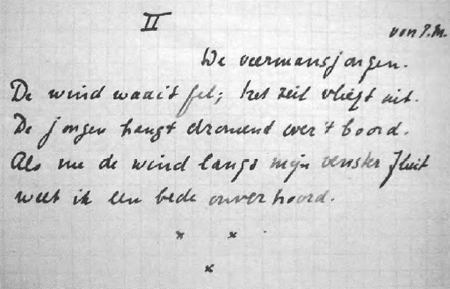 II
von P.M.
De veermansjongen.
De wind waait fel; het zeil vliegt uit.
De jongen hangt droomend over 't boord.
Als nu de wind langs mijn venster fluit
weet ik een bede onverhoord.
x x
x